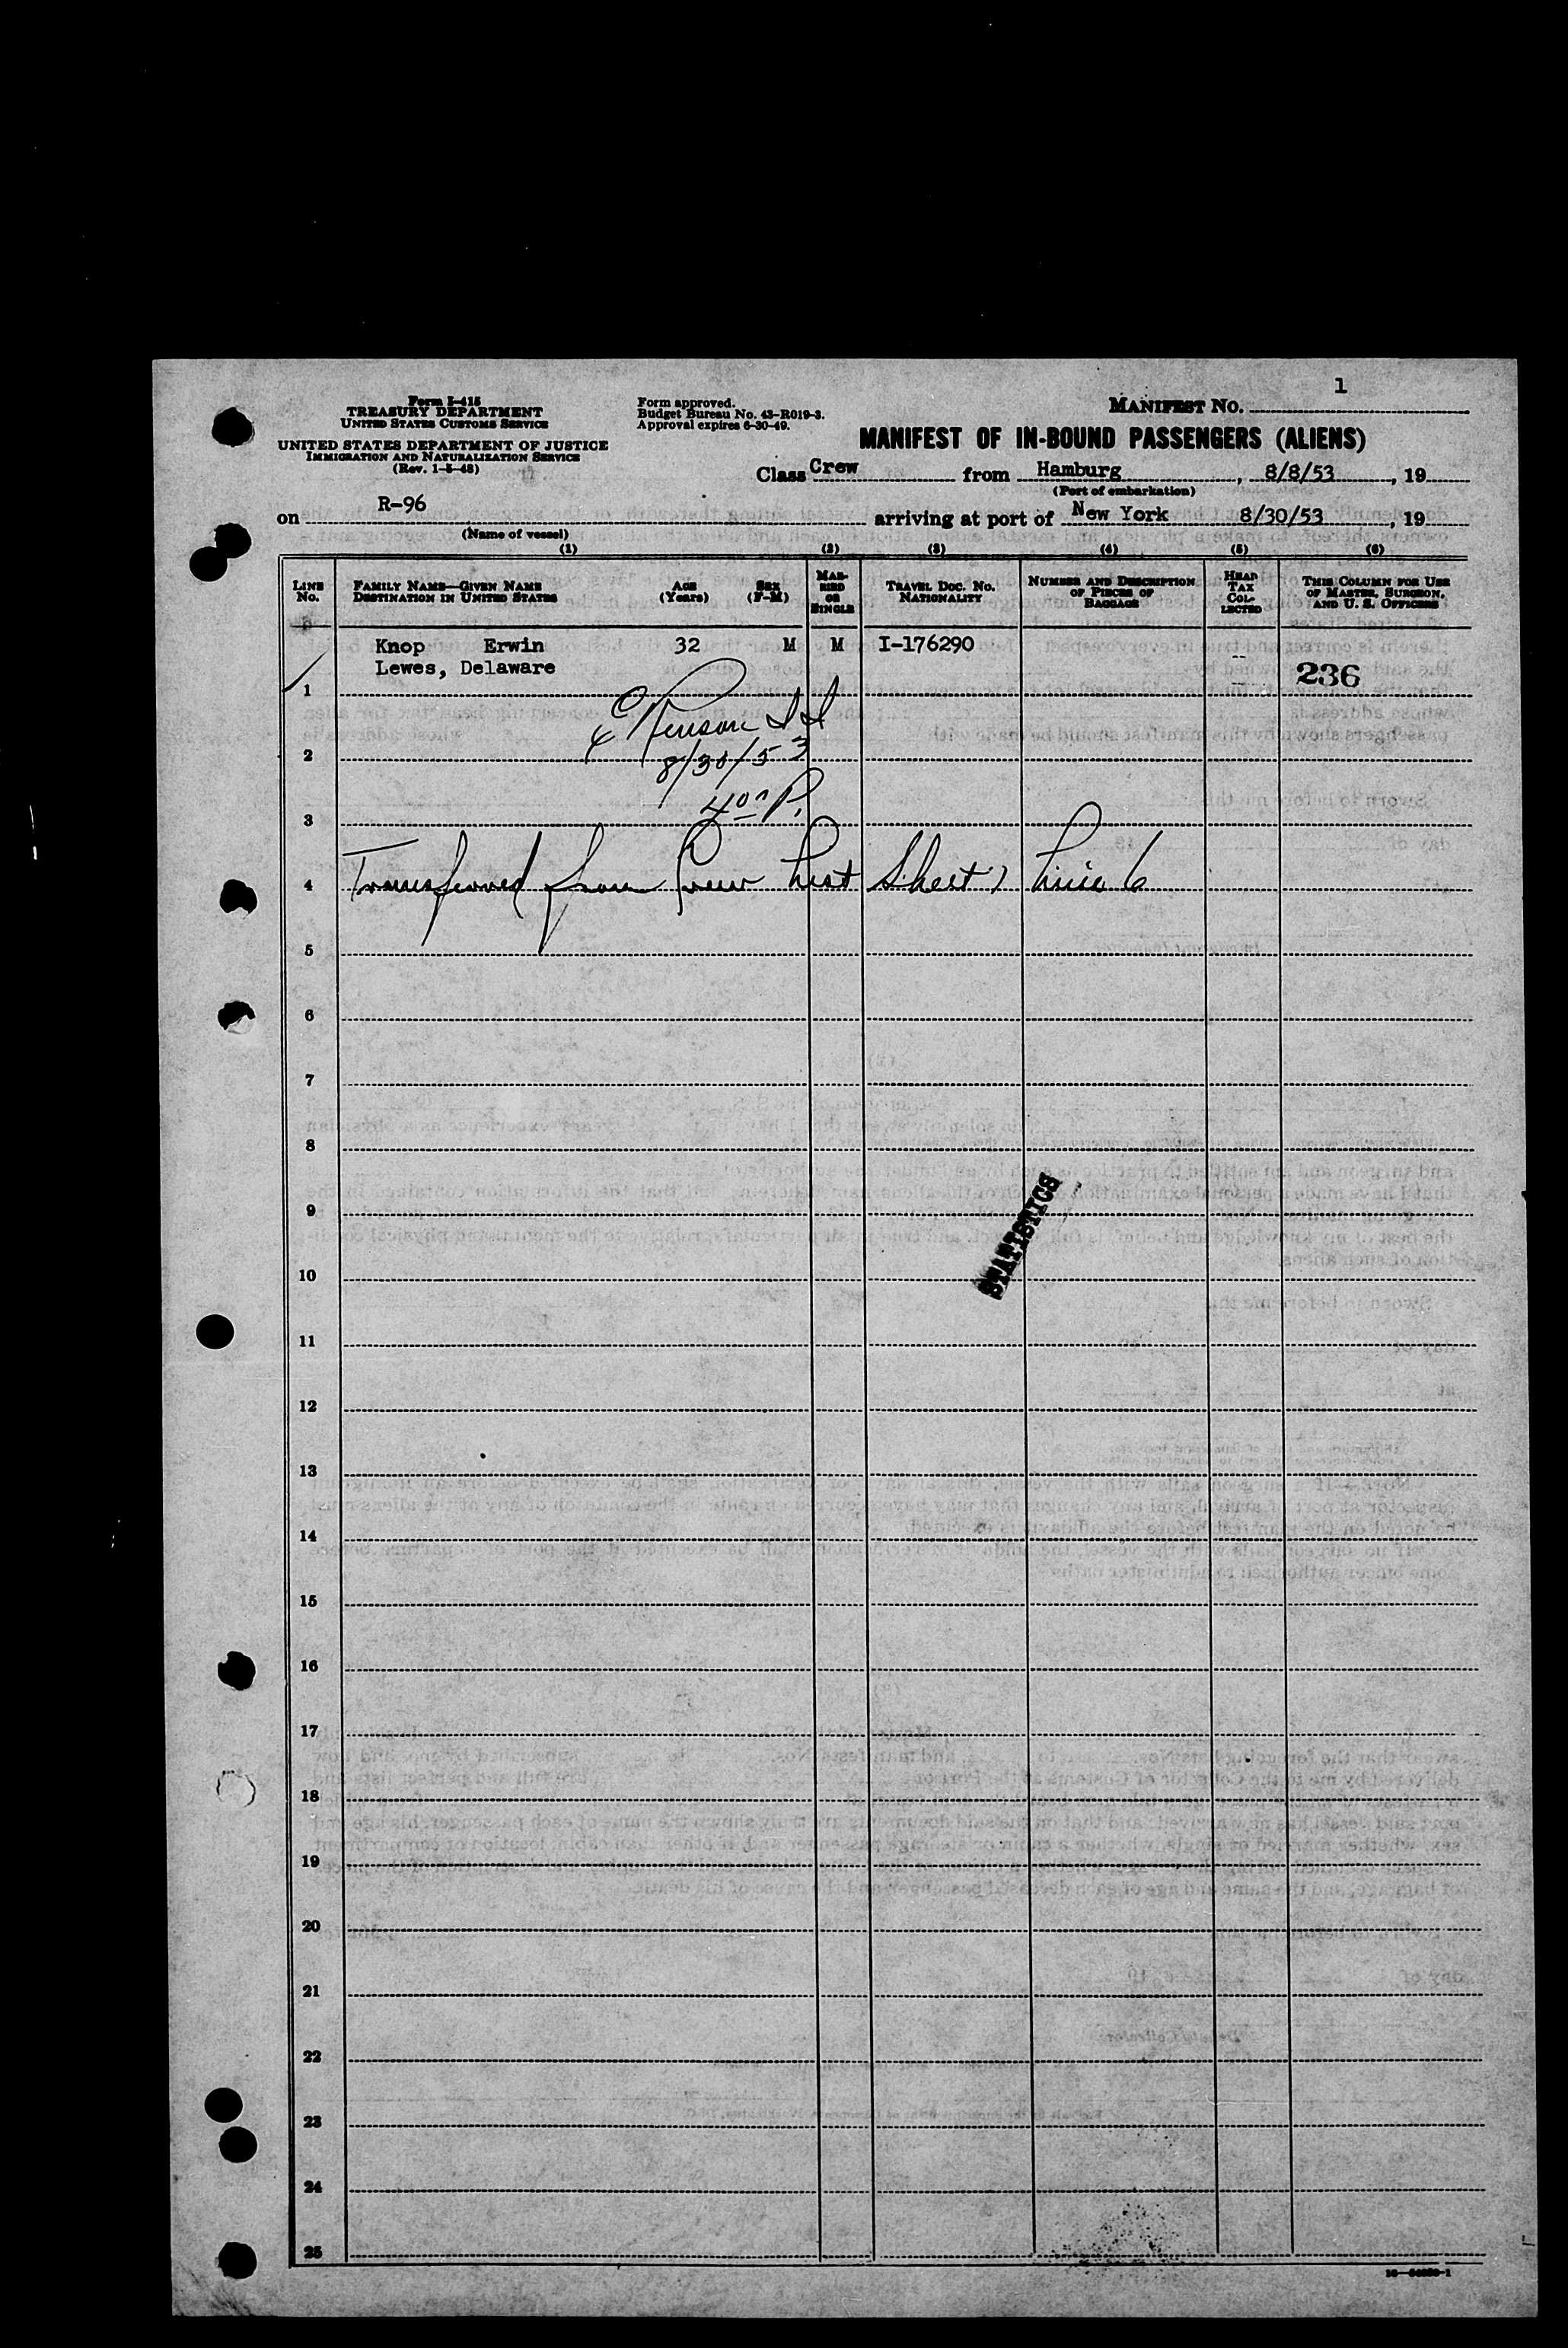 1
Form I-415
TREASURY DEPARTMENT
UNITED STATES CUSTOMS SERVICE
UNITED STATES DEPARTMENT OF JUSTICE
IMMIGRATION AND NATURALIZATION SERVICE
(Rev. 1-5-48)
Form approved.
Budget Bureau No. 43-R019-3.
Approval expires 6-30-49.
MANIFEST NO.
MANIFEST OF IN-BOUND PASSENGERS (ALIENS)
Class Crew from Hamburg, 8/8/53, 19
(Port of embarkation)
on R-96 arriving at port of New York 8/30/53, 19
(Name of vessel)
(1) (2) (3) (4) (5) (6)
LINE NO. FAMILY NAME—GIVEN NAME DESTINATION IN UNITED STATES AGE (Years) SEX (F-M) MARRIED OR SINGLE TRAVEL DOC. NO. NATIONALITY NUMBER AND DESCRIPTION OF PIECES OF BAGGAGE HEAD TAX COLLECTED THIS COLUMN FOR USE OF MASTER, SURGEON, AND U. S. OFFICERS
Knop Erwin 32 M M I-176290 --
Lewes, Delaware -- 236
1
8/30/53
2
400 P.
3
Transferred from Crew List Sheet 1 Line 6
4
5
6
7
8
9
STATISTICS
10
11
12
13
14
15
16
17
18
19
20
21
22
23
24
25